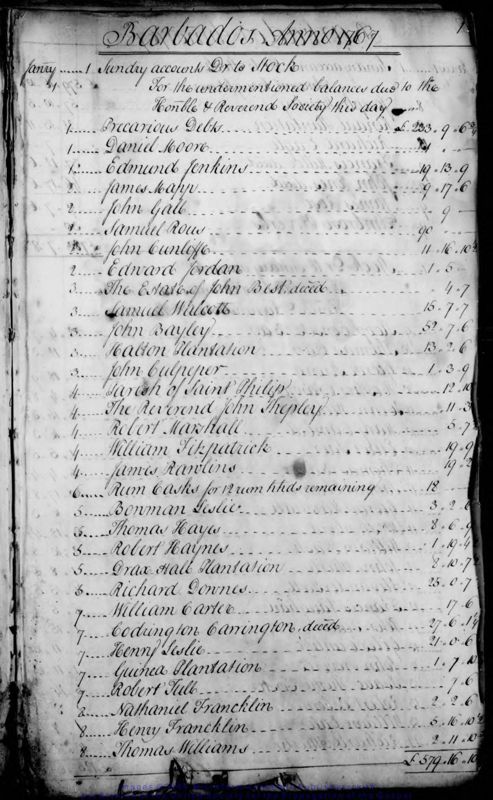 Barbados Anno 1767
Janry 1 Sundry accounts Drs to Stock
For the undermentioned balances due to the
Honble & Reverend Society this day
1 Precarious Debts £ 233 . 9 . 6 3/4
1 Daniel Moore
1 Edmund Jenkins 19 . 13 . 9
2 James Mapp 9 . 17 . 6
2 John Gall 9
2 Samuel Rous 90
2 John Cunloffe 11 . 16 . 10
2 Edward Jordan 1 . 5
3 The Estate of John Best decd 4 . 7
3 Samuel Walcott 15 . 7 . 7
3 John Bayley 52 . 7 . 6
3 Halton Plantation 13 . 2 . 6
3 John Culpeper 1 . 3 . 9
4 Parish of Saint Philip 12 . 10
4 The Reverend John Shepley 11 . 3
4 Robert Marshall 5 . 7
4 William Fitzpatrick 19 . 9
4 James Rawlins 19 . 2
6 Rum Casks for 12 rum hhds remaining 18
5 Bonman Leslie 3 . 2 . 6
5 Thomas Hayes 8 . 6 . 9
5 Robert Haynes 1 . 19 . 4
5 Drax Hall Plantation 2 . 10 . 7
6 Richard Downes 25 . 0 . 7
7 William Carter 17 . 6
7 Codrington Carrington decd 27 . 6 . 1
7 Henry Leslie 21 . 0 . 6
7 Guinea Plantation 1 . 7 . 10
7 Robert Tull 7 . 6
8 Nathaniel Francklin 2 . 2 . 6
8 Henry Francklin 5 . 16 . 10
8 Thomas Williams 2 . 11 . 10
£ 579 . 16 . 10